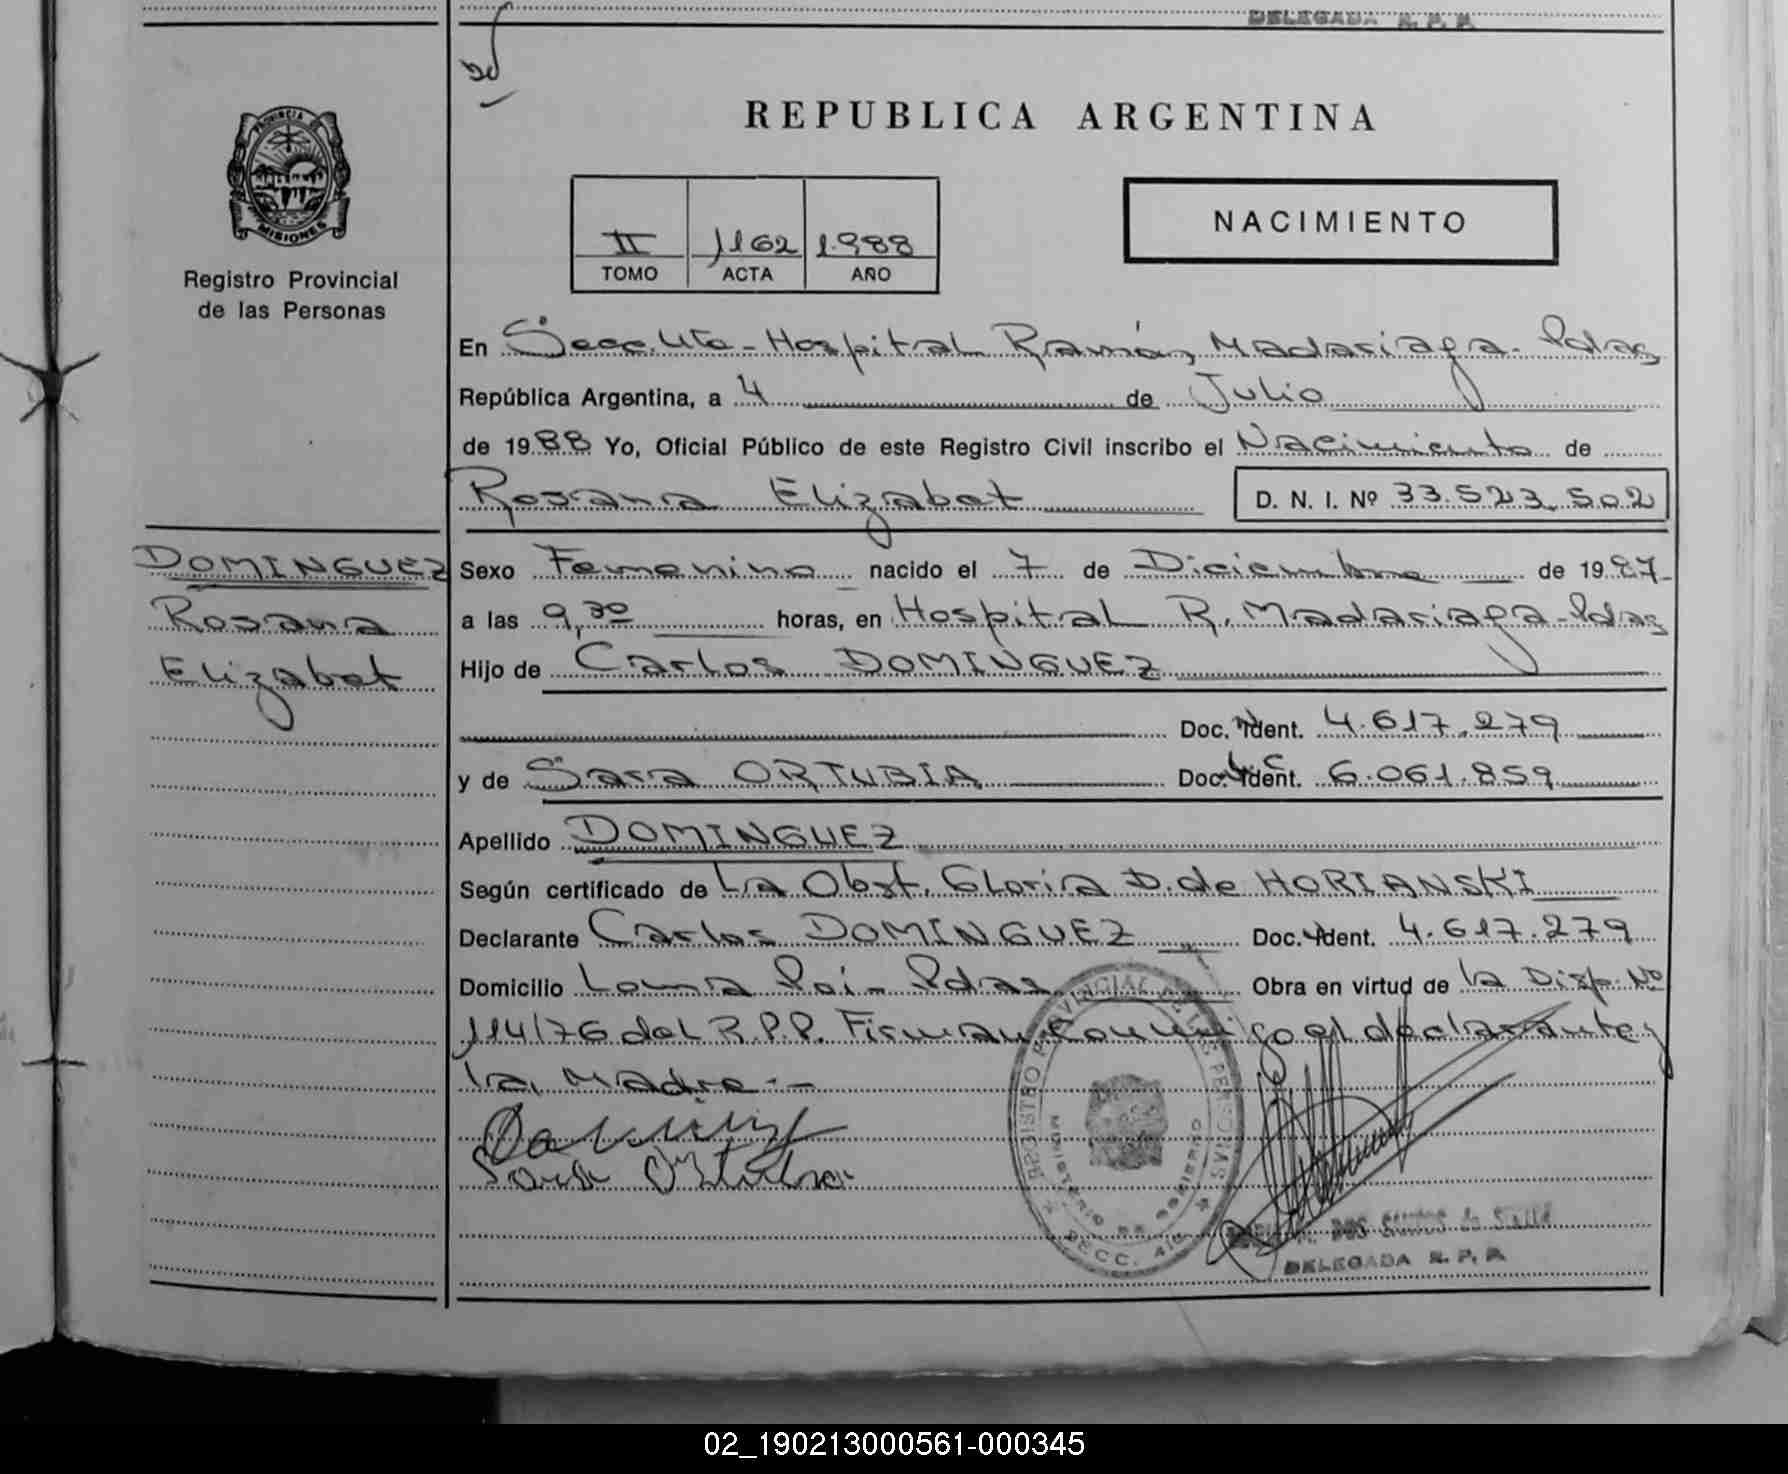 DELEGADA R. P. P.
REPUBLICA ARGENTINA
PROVINCIA DE
MISIONES
Registro Provincial
de las Personas
II 1162 1.988
TOMO ACTA AÑO
NACIMIENTO
En Secc. 4ta - Hospital Ramón Madariaga - Pdas
República Argentina, a 4 de Julio
de 1988 Yo, Oficial Público de este Registro Civil inscribo el Nacimiento de
Rosana Elizabet D. N. I. Nº 33.523.502
DOMINGUEZ
Rosana
Elizabet
Sexo Femenino nacido el 7 de Diciembre de 1987-
a las 9,30 horas, en Hospital R. Madariaga - Pdas
Hijo de Carlos DOMINGUEZ
Doc. Ident. 4.617.279
y de Sara ORTUBIA Doc. Ident. 6.061.859
Apellido DOMINGUEZ
Según certificado de La Obst. Gloria D. de HORIANSKI
Declarante Carlos DOMINGUEZ Doc. Ident. 4.617.279
Domicilio Loma Poi - Pdas Obra en virtud de la Disp. Nº
114/76 del R.P.P. Firman conmigo el declarante y
la Madre.-
REGISTRO PROVINCIAL DE LAS PERSONAS
MINISTERIO DE GOBIERNO
SECC. 4ta
Sara Ortubia
DOS SANTOS de
DELEGADA R. P. P.
02_190213000561-000345